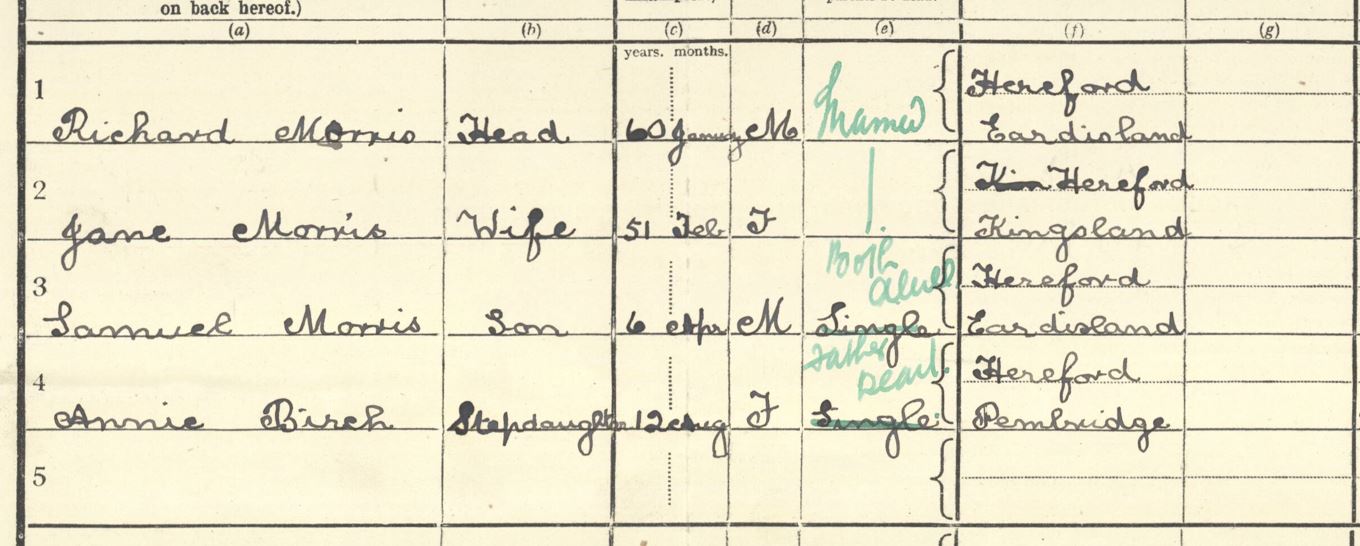 on back hereof.)
(a) (b) (c) (d) (e) (f) (g)
years. months.
1 Hereford
Richard Morris Head 60 January M Married Eardisland
2 Hereford
Jane Morris Wife 51 Feb F Kingsland
3 Both alive Hereford
Samuel Morris Son 6 Apr M Single Eardisland
4 Father Dead. Hereford
Annie Birch Stepdaughter 12 Aug F Single Pembridge
5